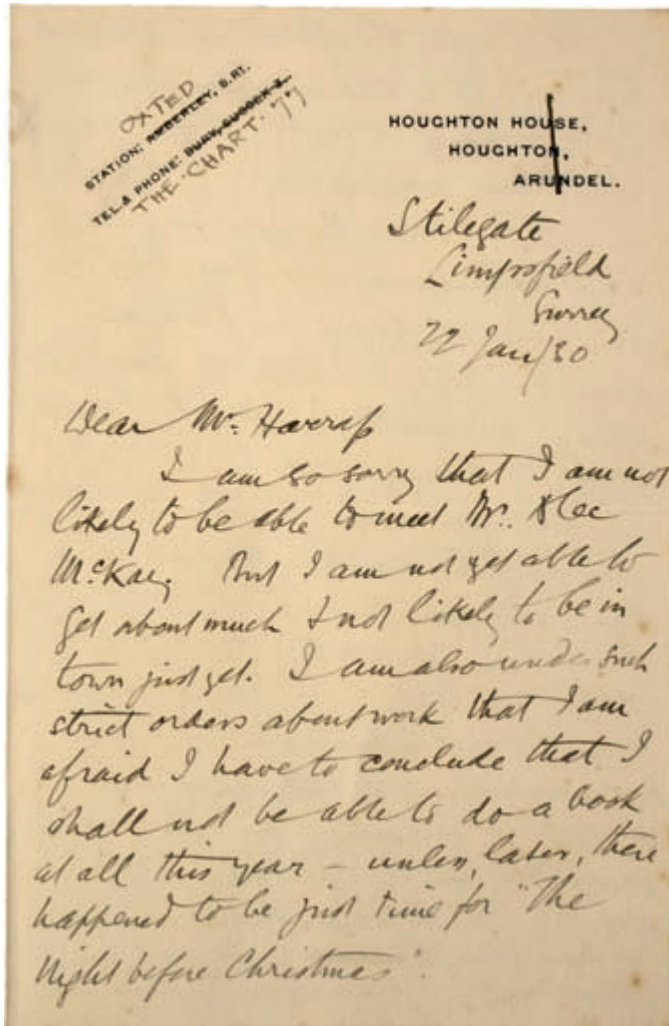 OXTED
STATION: AMBERLEY, S.RY.
TEL. & PHONE: BURY, SUSSEX 2.
THE CHART. 77
HOUGHTON HOUSE,
HOUGHTON,
ARUNDEL.
Stilegate
Limpsfield
Surrey
22 Jan/30
Dear Mr. Harrap
I am so sorry that I am not
likely to be able to meet Mr. Alec
McKay. But I am not yet able to
get about much & not likely to be in
town just yet. I am also under such
strict orders about work that I am
afraid I have to conclude that I
shall not be able to do a book
at all this year – unless, later, there
happened to be just time for "The
Night before Christmas".